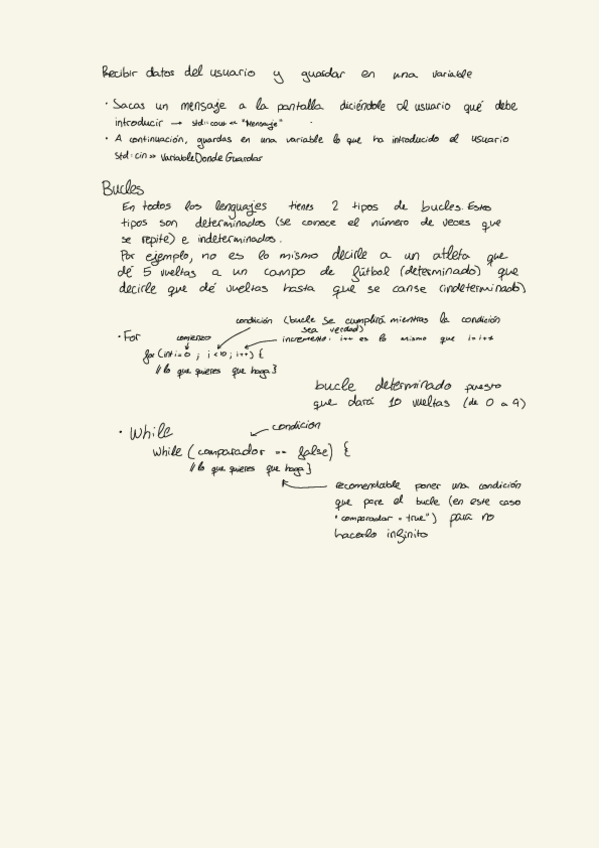 Recibir datos del usuario y guardar en una variable
· Sacas un mensaje a la pantalla diciéndole al usuario qué debe
introducir → std::cout << "Mensaje"
· A continuación, guardas en una variable lo que ha introducido el usuario
std::cin >> VariableDondeGuardar
Bucles
En todos los lenguajes tienes 2 tipos de bucles. Estos
tipos son determinados (se conoce el número de veces que
se repite) e indeterminados.
Por ejemplo, no es lo mismo decirle a un atleta que
dé 5 vueltas a un campo de fútbol (determinado) que
decirle que dé vueltas hasta que se canse (indeterminado)
condición (bucle se cumplirá mientras la condición
sea verdad)
· For comienzo incremento. i++ es lo mismo que
for (int i=0 ; i<10 ; i++) {
// lo que quieres que haga }
bucle determinado puesto
que dará 10 vueltas (de 0 a 9)
· While condición
while (comparador == false) {
// lo que quieres que haga }
recomendable poner una condición
que pare el bucle (en este caso
"comparador = true") para no
hacerlo infinito